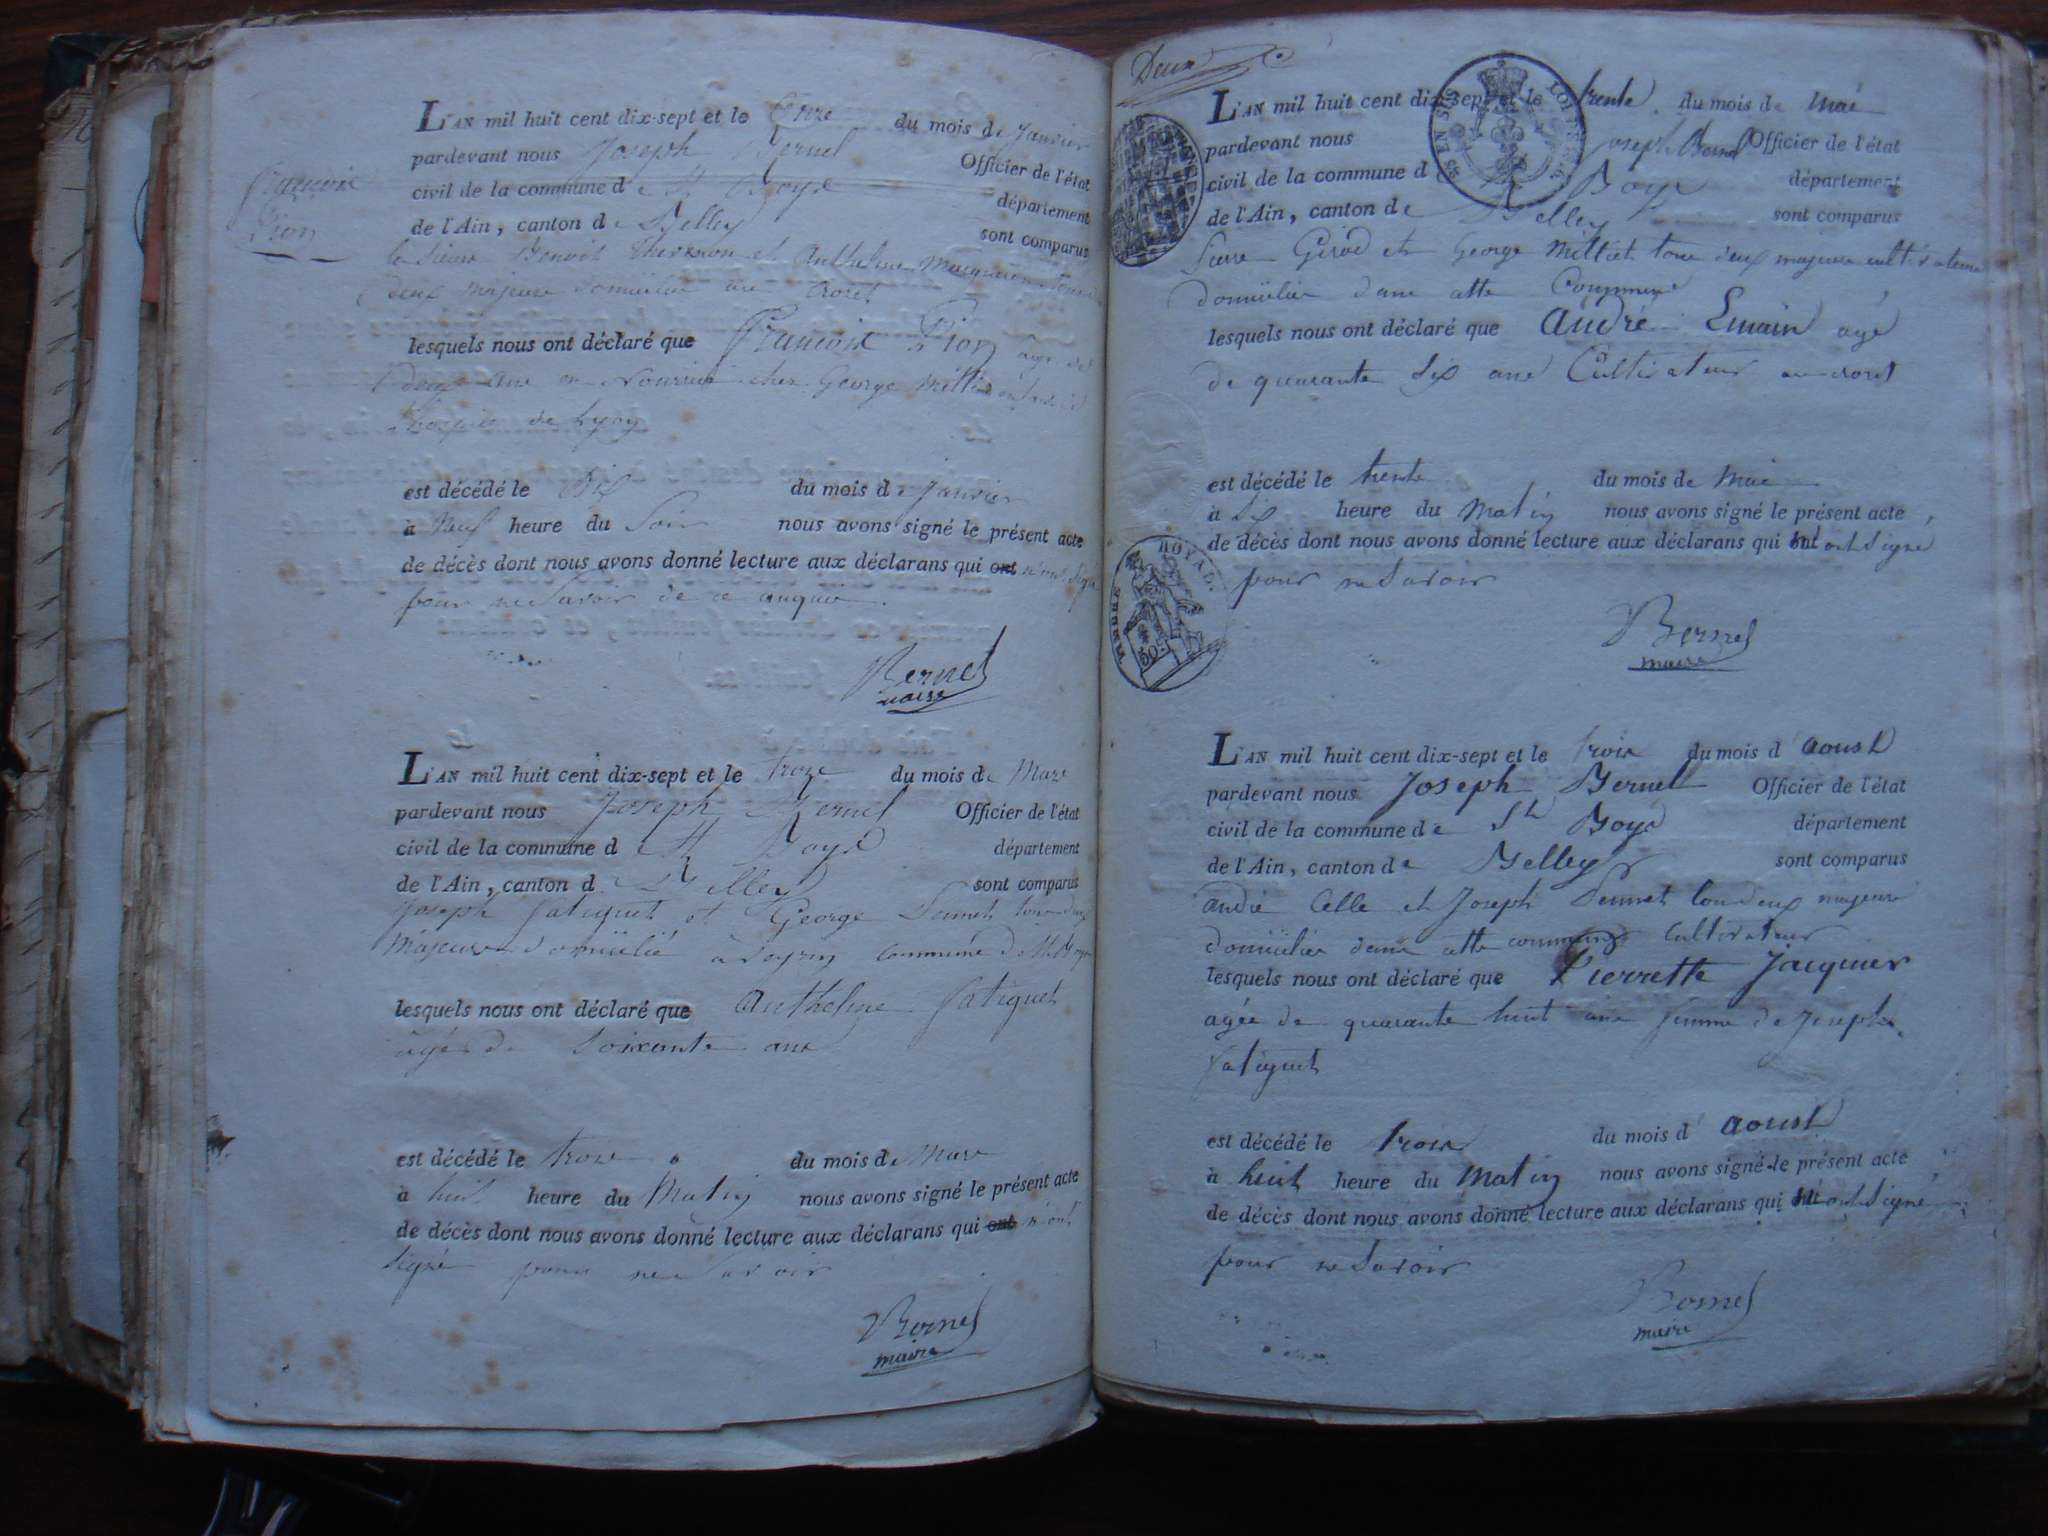 François
Pion
L'AN mil huit cent dix-sept et le onze du mois de janvier
pardevant nous Joseph Bernel Officier de l'état
civil de la commune de St Boys département
de l'Ain, canton de Belley sont comparus
le sieur Benoit et Anthelme
deux majeurs domicilié au
lesquels nous ont déclaré que François Pion agé de
deux ans en nourrice chez George Milliet
de Lyon
est décédé le dix du mois de janvier
à neuf heure du Soir nous avons signé le présent acte
de décès dont nous avons donné lecture aux déclarans qui ont n'ont signé
pour ne Savoir de ce enquis.
Bernel
maire
L'AN mil huit cent dix-sept et le troze du mois de Mars
pardevant nous Joseph Bernel Officier de l'état
civil de la commune de St Boys département
de l'Ain, canton de Belley sont comparus
Joseph Fatiguet et George tous deux
Majeurs domicilié à commune de St Boys
lesquels nous ont déclaré que Anthelme Fatiguet
agé de Soixante ans
est décédé le troze du mois de Mars
à huit heure du Matin nous avons signé le présent acte
de décès dont nous avons donné lecture aux déclarans qui ont n'ont
signé pour ne Savoir
Bernel
maire
Deux
L'AN mil huit cent dix-sept et le trente du mois de Mai
pardevant nous Joseph Bernel Officier de l'état
civil de la commune de St Boys département
de l'Ain, canton de Belley sont comparus
Pierre Girod et George Milliet tous deux majeurs cultivateurs
domicilies dans cette Commune
lesquels nous ont déclaré que André Emain agé
de quarante Six ans Cultivateur
est décédé le trente du mois de Mai
à Six heure du Matin nous avons signé le présent acte,
de décès dont nous avons donné lecture aux déclarans qui n'ont signé
pour ne Savoir
TIMBRE ROYAL
50
Bernel
maire
L'AN mil huit cent dix-sept et le trois du mois d'aoust
pardevant nous Joseph Bernel Officier de l'état
civil de la commune de St Boys département
de l'Ain, canton de Belley sont comparus
André Celle et Joseph tous deux majeurs
domicilies dans cette commune Cultivateurs
lesquels nous ont déclaré que Pierrette Jacquier
agée de quarante huit ans femme de Joseph
Fatiguet
est décédé le trois du mois d'aoust
à huit heure du Matin nous avons signé le présent acte
de décès dont nous avons donné lecture aux déclarans qui n'ont signé
pour ne Savoir
Bernel
maire